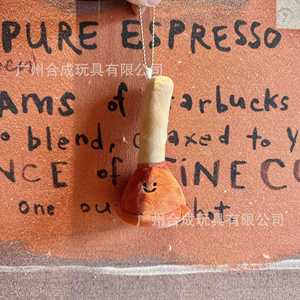 PURE ESPRESSO
广州合成玩具有限公司
AMS of arbucks
o blend, axed to Y
NCE of FINE CO
one ou t
广州合成玩具有限公司